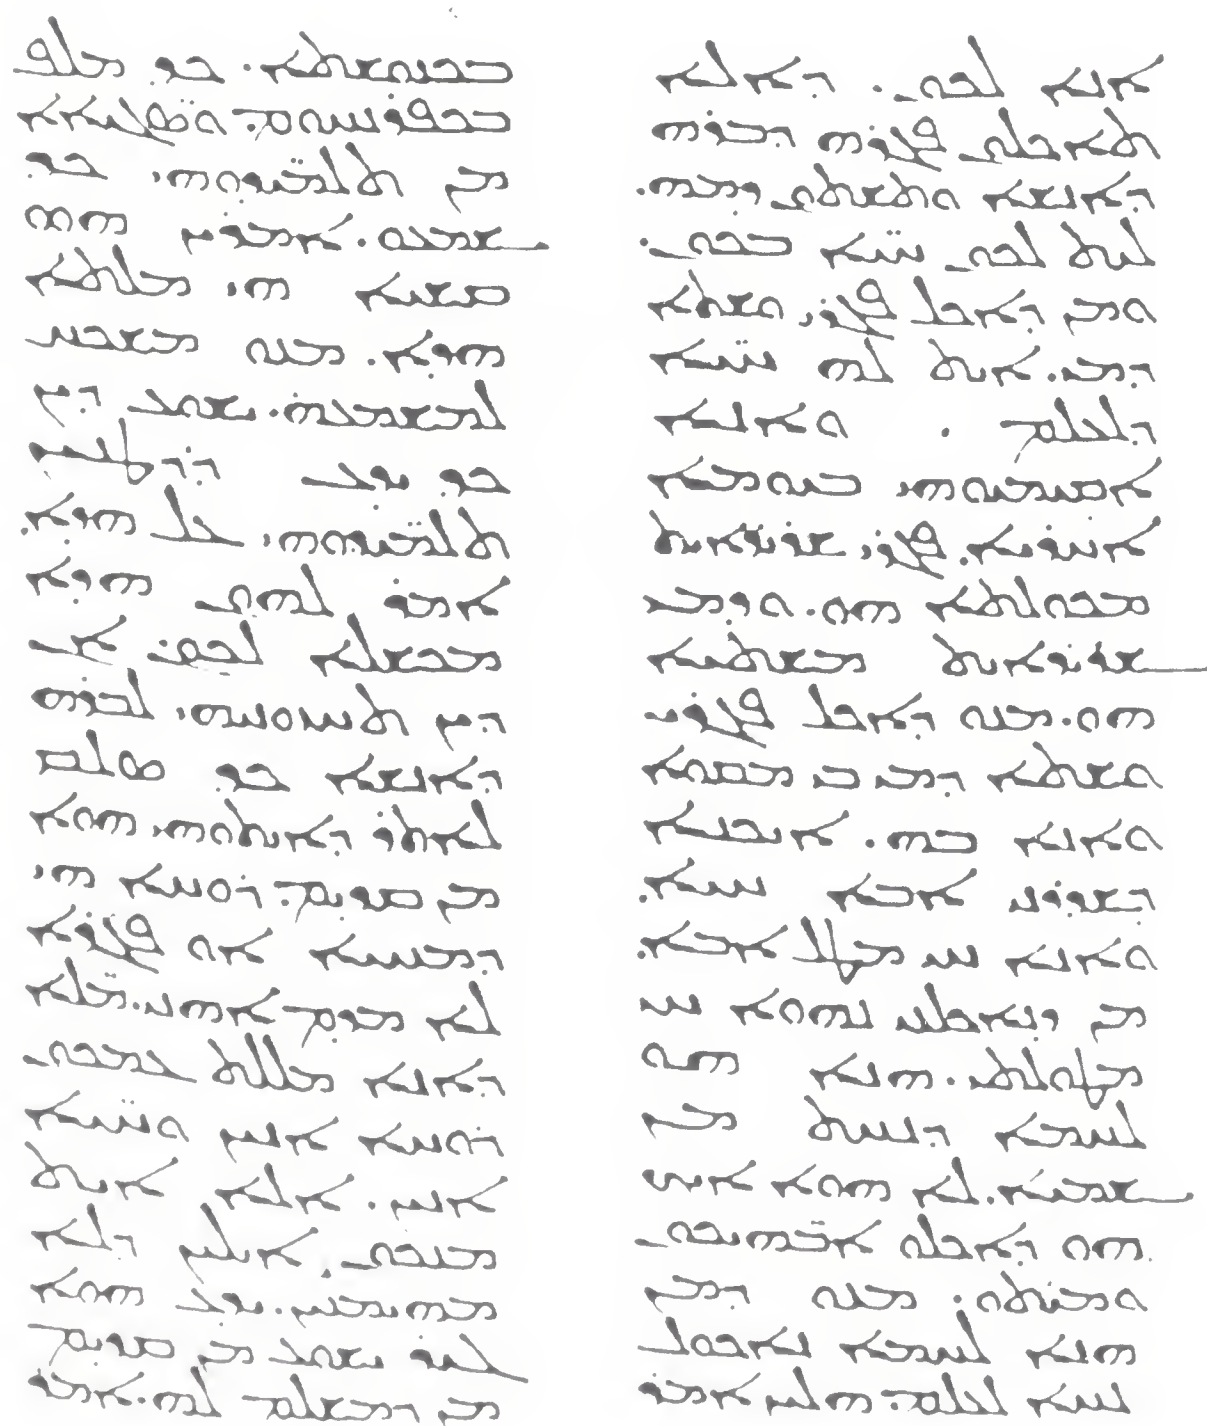 ܐܢܐ ܠܟܘܢ. ܕܐܠܐ
ܬܐܟܠܘܢ ܦܓܪܗ ܕܒܪܗ
ܕܐܢܫܐ ܘܬܫܬܘܢ ܕܡܗ.
ܠܝܬ ܠܟܘܢ ܚܝ̈ܐ ܒܟܘܢ.
ܘܡܢ ܕܐܟܠ ܦܓܪܝ ܘܫܬܐ
ܕܡܝ. ܐܝܬ ܠܗ ܚܝ̈ܐ
ܕܠܥܠܡ . ܘܐܢܐ
ܐܩܝܡܝܘܗܝ ܒܝܘܡܐ
ܐܚܪܝܐ. ܦܓܪܝ ܫܪܝܪܐܝܬ
ܡܐܟܘܠܬܐ ܗܘ. ܘܕܡܝ
ܫܪܝܪܐܝܬ ܡܫܬܝܐ
ܗܘ. ܡܢܘ ܕܐܟܠ ܦܓܪܝ
ܘܫܬܐ ܕܡܝ ܒܝ ܡܩܘܐ
ܘܐܢܐ ܒܗ. ܐܝܟܢܐ
ܕܫܕܪܢܝ ܐܒܐ ܚܝܐ.
ܘܐܢܐ ܚܝ ܡܛܠ ܐܒܐ.
ܡܢ ܕܢܐܟܠܢܝ ܢܗܘܐ ܚܝ
ܡܛܘܠܬܝ. ܗܢܐ ܗܘ
ܠܚܡܐ ܕܢܚܬ ܡܢ
ܫܡܝܐ. ܠܐ ܗܘܐ ܐܝܟ
ܗܘ ܕܐܟܠܘ ܐܒ̈ܗܝܟܘܢ
ܘܡܝܬܘ. ܡܢܘ ܕܡܢ
ܗܢܐ ܠܚܡܐ ܢܐܟܘܠ
ܢܚܐ ܠܥܠܡ. ܗܠܝܢ ܐܡܪ
ܒܟܢܘܫܬܐ. ܟܕ ܡܠܦ
ܒܟܦܪܢܚܘܡ. ܘܣ̈ܓܝܐܐ
ܡܢ ܬܠܡܝ̈ܕܘܗܝ ܟܕ
ܫܡܥܘ. ܐܡܪܝܢ ܗܘܘ
ܩܫܝܐ ܗܝ ܡܠܬܐ
ܗܕܐ. ܡܢܘ ܡܫܟܚ
ܠܡܫܡܥܗ. ܝܫܘܥ ܕܝܢ
ܟܕ ܝܕܥ ܕܪܛܢܝܢ
ܬܠܡܝ̈ܕܘܗܝ ܥܠ ܗܕܐ.
ܐܡܪ ܠܗܘܢ ܗܕܐ
ܡܟܫܠܐ ܠܟܘܢ. ܐܢ
ܕܝܢ ܬܚܙܘܢܝܗܝ ܠܒܪܗ
ܕܐܢܫܐ ܟܕ ܣܠܩ
ܠܐܬܪ ܕܐܝܬܘܗܝ ܗܘܐ
ܡܢ ܩܕܝܡ. ܪܘܚܐ ܗܝ
ܕܡܚܝܐ ܐܘ ܦܓܪܐ
ܠܐ ܡܕܡ ܐܗܢܝ. ܡ̈ܠܐ
ܕܐܢܐ ܡܠܠܬ ܥܡܟܘܢ
ܪܘܚܐ ܐܢܝܢ ܘܚܝ̈ܐ
ܐܢܝܢ. ܐܠܐ ܐܝܬ
ܡܢܟܘܢ ܐܝܠܝܢ ܕܠܐ
ܡܗܝܡܢܝܢ. ܝܕܥ ܗܘܐ
ܓܝܪ ܝܫܘܥ ܡܢ ܩܕܝܡ
ܡܢ ܕܡܫܠܡ ܠܗ. ܐܡܪ